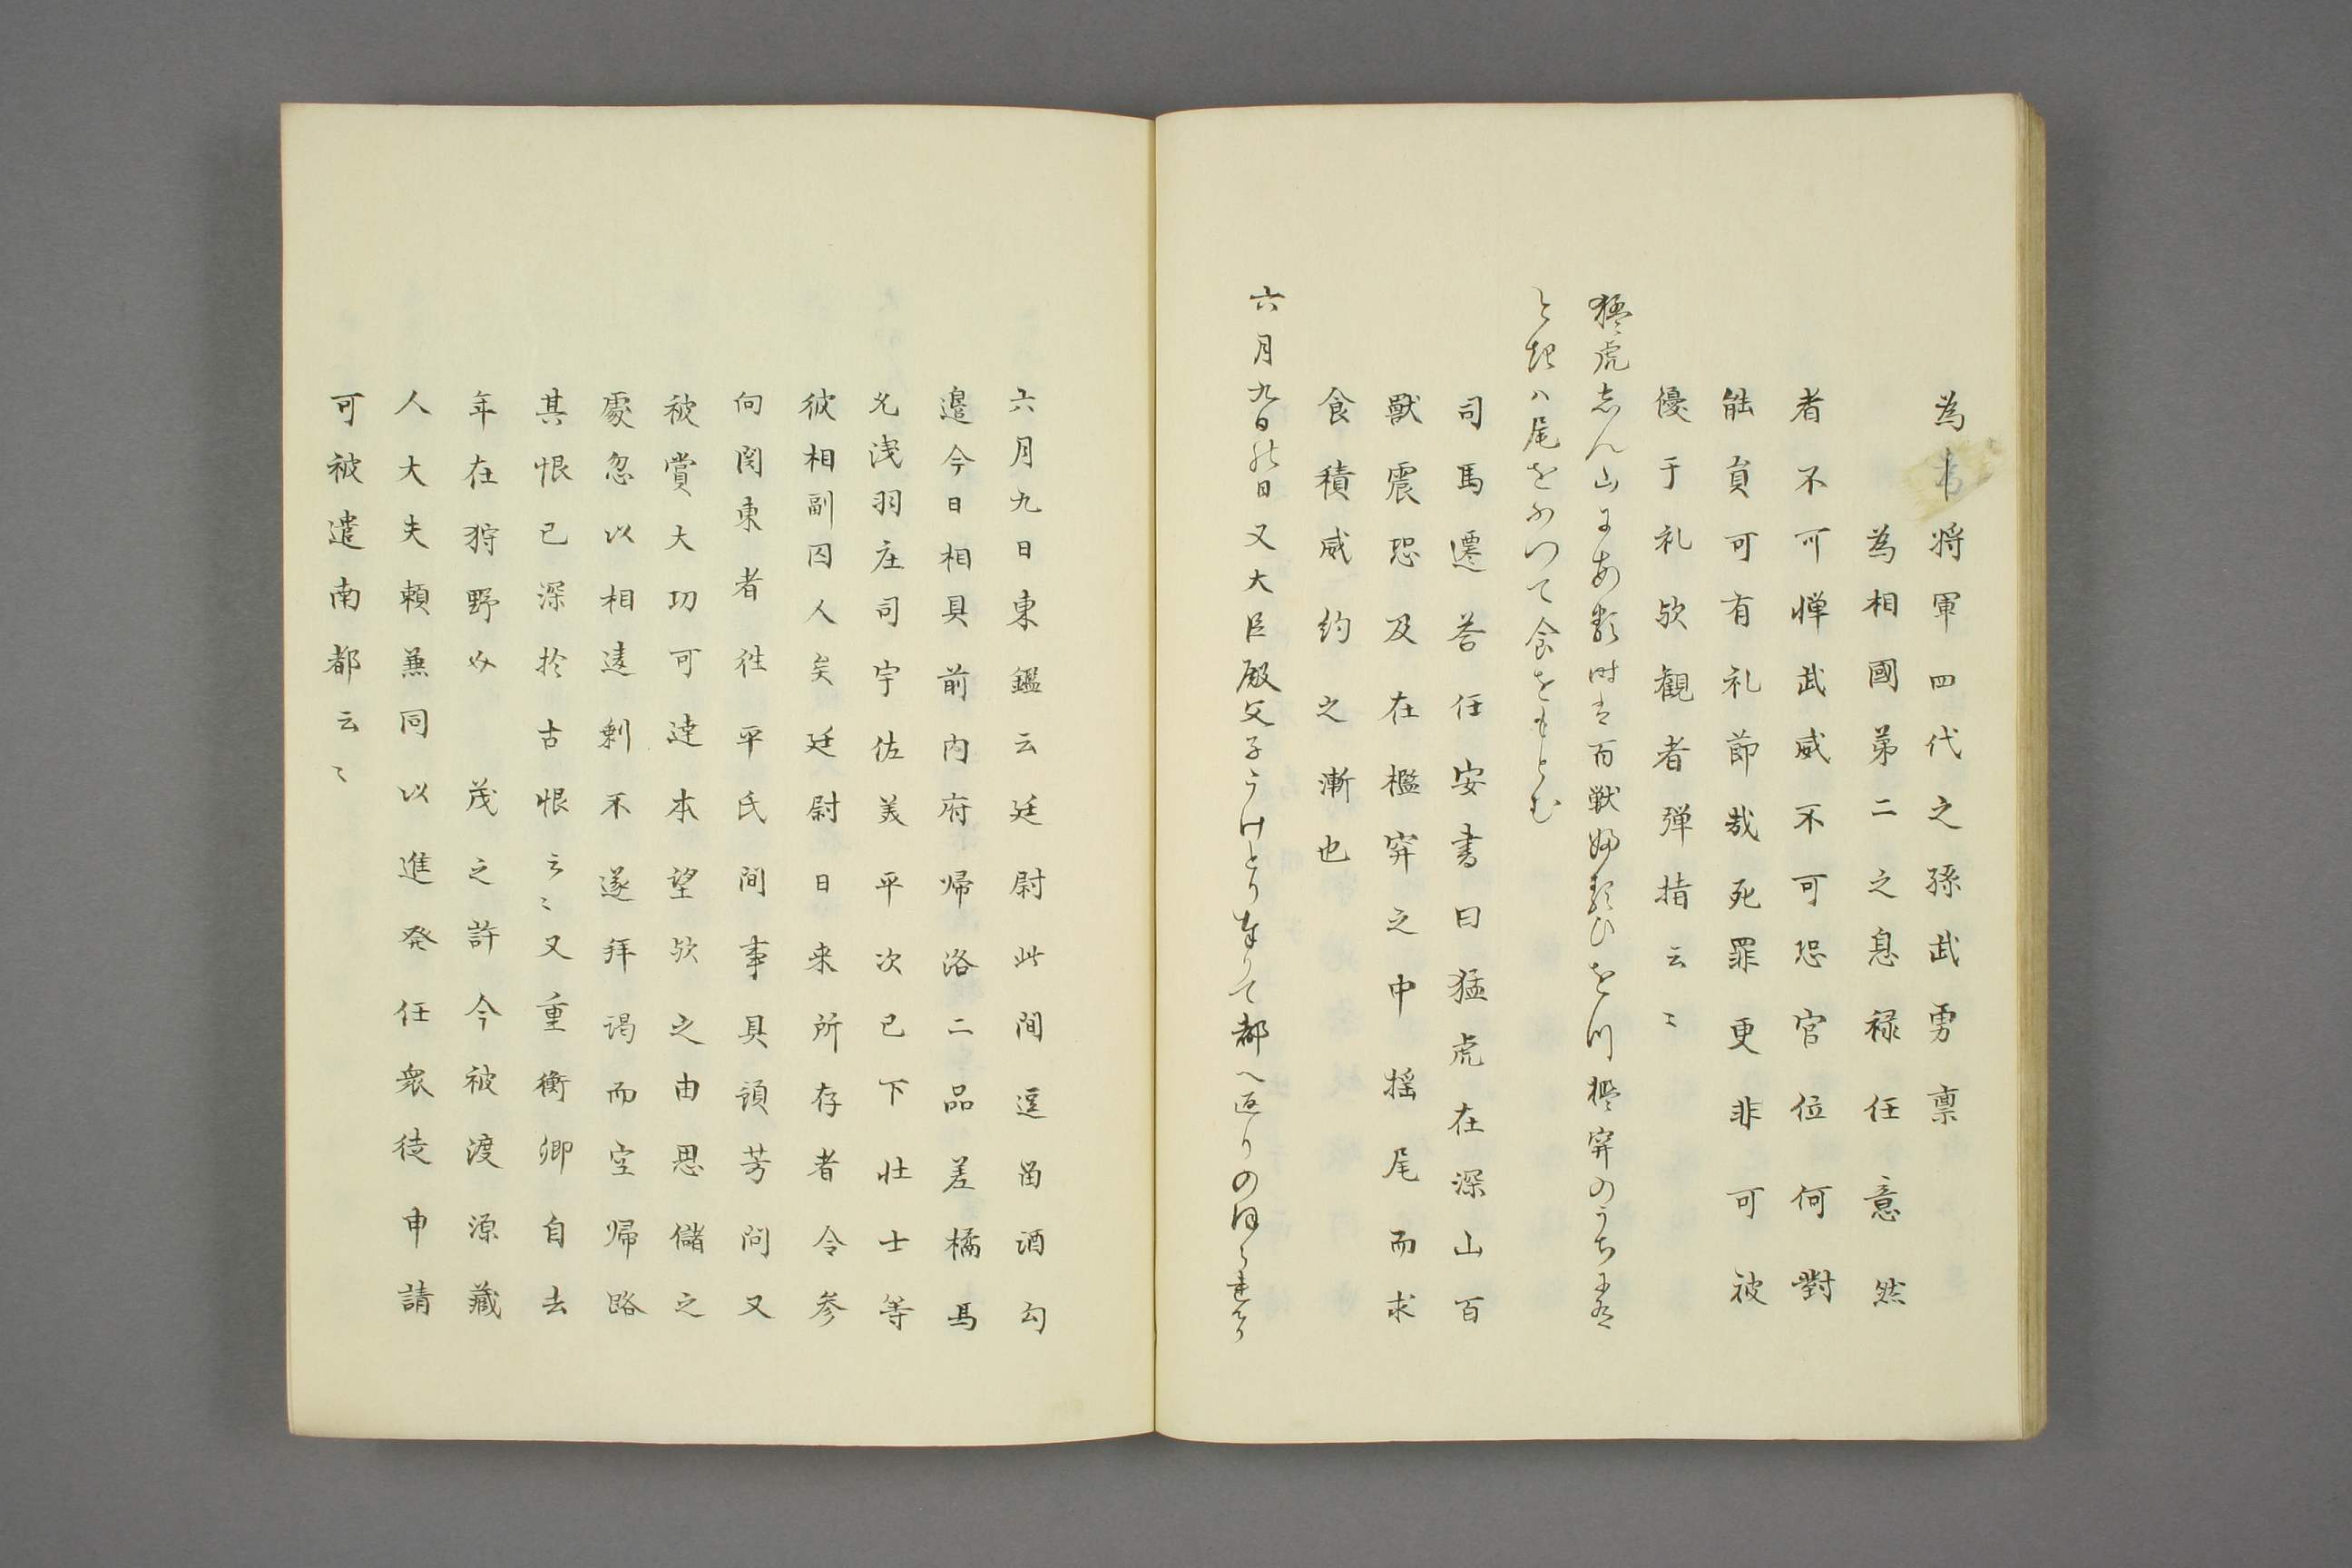 為 将軍四代之孫武勇禀
為相國第二之息禄任意然
者不可惮武威不可恐官位何對
能員可有礼節哉死罪更非可被
優于礼欤観者弾指云〻
猛虎志ん山にある時は百獣ふるひをつ檻穽のうちに
ときハ尾をふつて食をもとむ
司馬遷荅任安書曰猛虎在深山百
獸震恐及在檻穽之中揺尾而求
食積威約之漸也
六月九日の日又大臣殿父子うけとり奉りて都へ返りのほられけり
六月九日東鑑云廷尉此間逗留酒匂
邉今日相具前内府帰洛二品差橘馬
允浅羽庄司宇佐美平次已下壮士等
彼相副囚人矣廷尉日来所存者令参
向関東者徃平氏間事具預芳問又
被賞大功可達本望欤之由思儲之
處忽以相違剰不遂拜謁而空帰路
其恨已深於古恨云〻又重衡卿自去
年在狩野 茂之許今被渡源藏
人大夫頼兼同以進発任衆徒申請
可被遣南都云〻